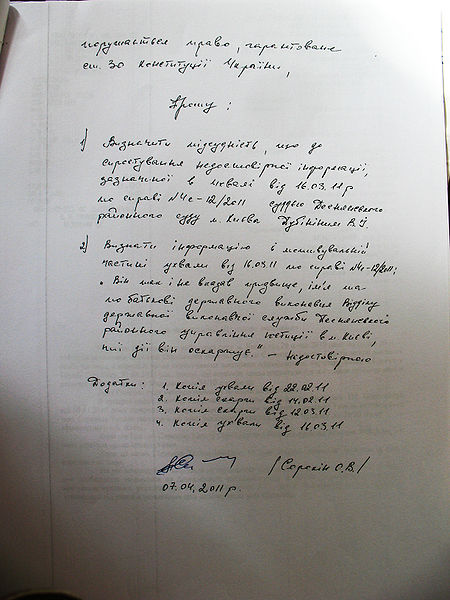 порушається право, гарантоване
ст. 30 Конституції України,
Прошу:
1) Визначити підсудність, що до
спростування недостовірної інформації,
зазначеної в ухвалі від 16.03.11р
по справі №4с-12/2011 суддею Деснянського
районного суду м. Києва Дубініним В.
2) Визнати інформацію в мотивувальній
частині ухвали від 16.03.11 по справі №4с-12/2011;
"Він так і не вказав прізвище, ім'я та
по батькові державного виконавця Відділу
державної виконавчої служби Деснянського
районного управління юстиції в м. Києві,
дії він оскаржує." – недостовірною
Додатки: 1. Копія ухвали від 22.02.11
2. Копія скарги від 14.02.11
3. Копія скарги від 12.03.11
4. Копія ухвали від 16.03.11
/Сорокін О.В/
07.04.2011 р.